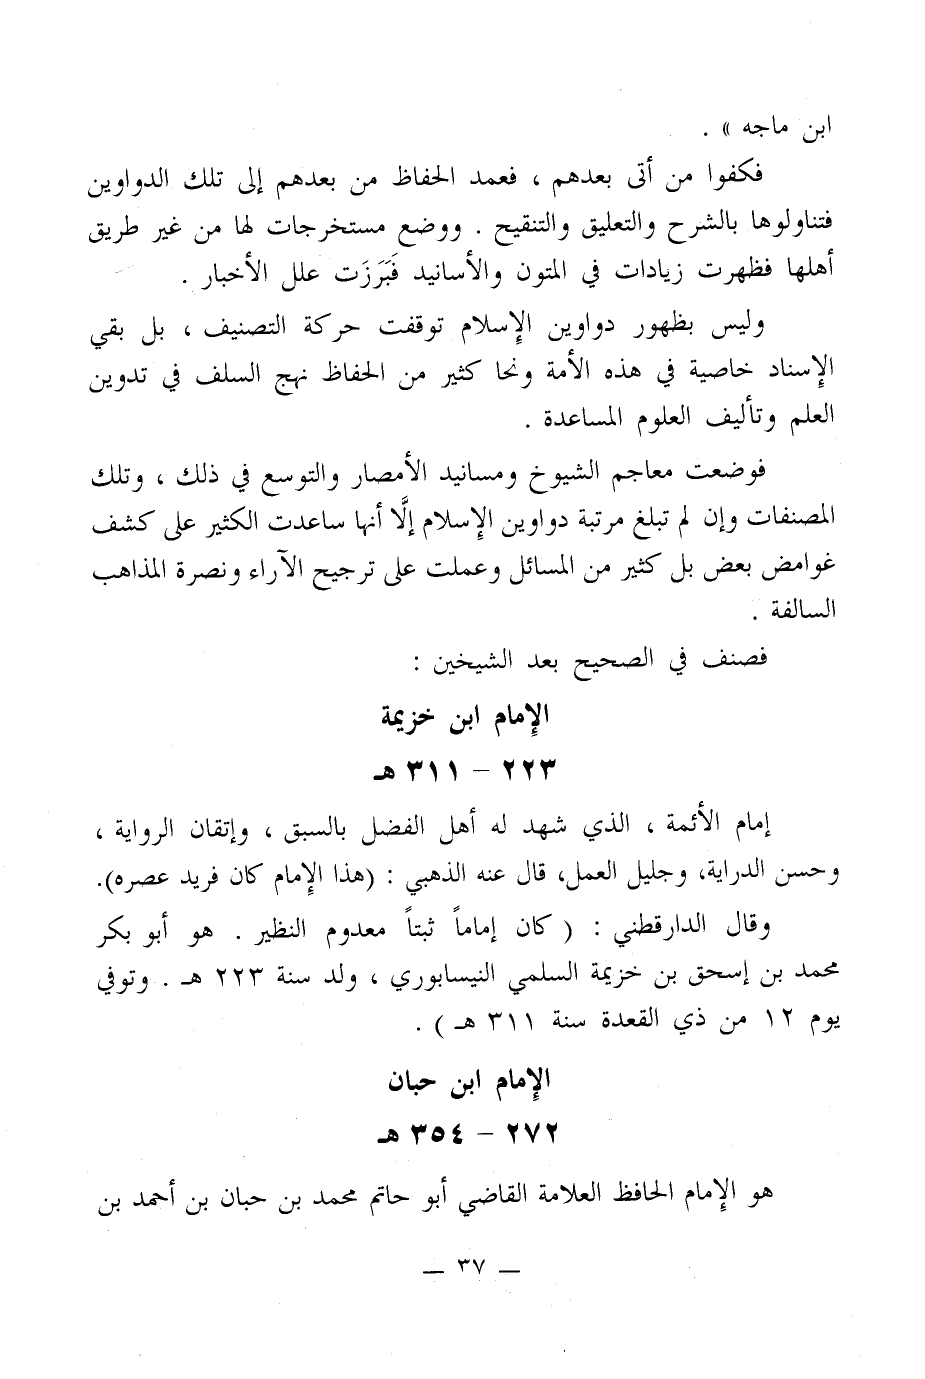 ابن ماجه » .
فكفوا من أتى بعدهم ، فعمد الحفاظ من بعدهم إلى تلك الدواوين
فتناولوها بالشرح والتعليق والتنقيح . ووضع مستخرجات لها من غير طريق
أهلها فظهرت زيادات في المتون والأسانيد فَبَرَزَت علل الأخبار .
وليس بظهور دواوين الإسلام توقفت حركة التصنيف ، بل بقي
الإسناد خاصية في هذه الأمة ونحا كثير من الحفاظ نهج السلف في تدوين
العلم وتأليف العلوم المساعدة .
فوضعت معاجم الشيوخ ومسانيد الأمصار والتوسع في ذلك ، وتلك
المصنفات وإن لم تبلغ مرتبة دواوين الإسلام إلَّا أنها ساعدت الكثير على كشف
غوامض بعض بل كثير من المسائل وعملت على ترجيح الآراء ونصرة المذاهب
السالفة .
فصنف في الصحيح بعد الشيخين :
الإمام ابن خزيمة
٢٢٣ – ٣١١ هـ
إمام الأئمة ، الذي شهد له أهل الفضل بالسبق ، وإتقان الرواية ،
وحسن الدراية، وجليل العمل، قال عنه الذهبي : (هذا الإمام كان فريد عصره).
وقال الدارقطني : ( كان إماماً ثبتاً معدوم النظير . هو أبو بكر
محمد بن إسحق بن خزيمة السلمي النيسابوري ، ولد سنة ٢٢٣ هـ . وتوفي
يوم ١٢ من ذي القعدة سنة ٣١١ هـ ) .
الإمام ابن حبان
٢٧٢ – ٣٥٤ هـ
هو الإمام الحافظ العلامة القاضي أبو حاتم محمد بن حبان بن أحمد بن
— ٣٧ —